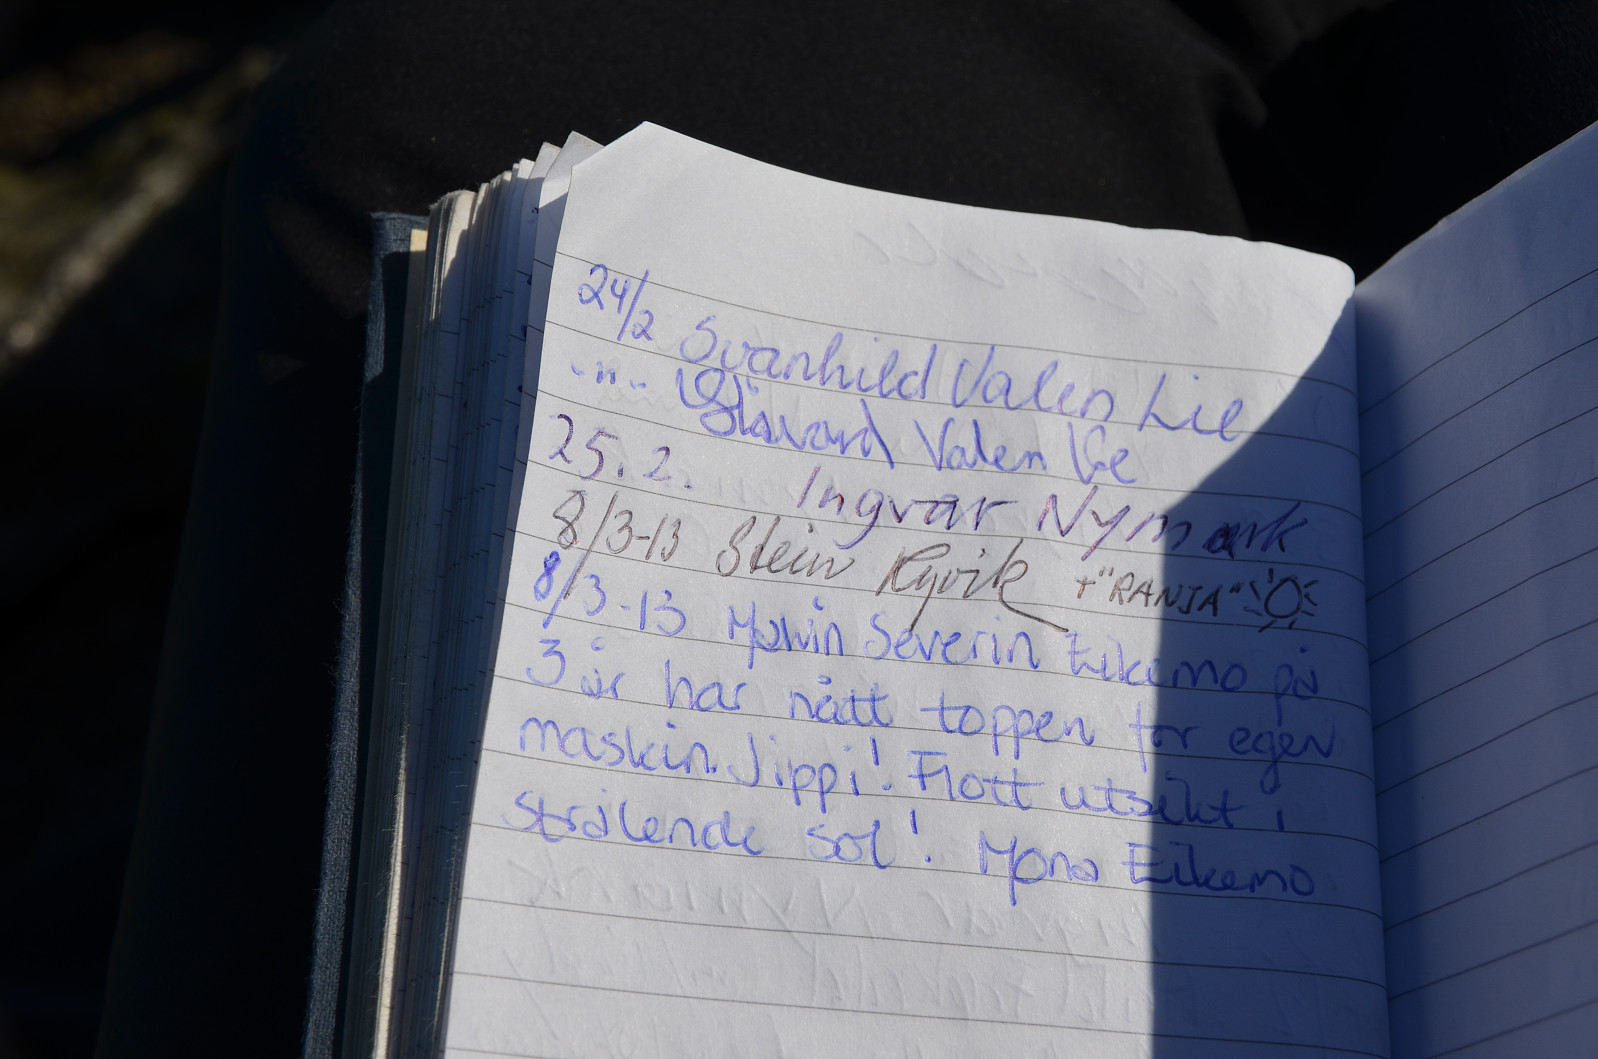 24/2 Svanhild Valen Lie
-"- Håvard Valen Lie
25.2. Ingvar Nymark
8/3-13 Stein Ryvik + "RANJA"
8/3-13 Severin Eikemo på
3 år har nått toppen for egen
maskin. Jippi! Flott utsikt i
strålende sol! Mona Eikemo